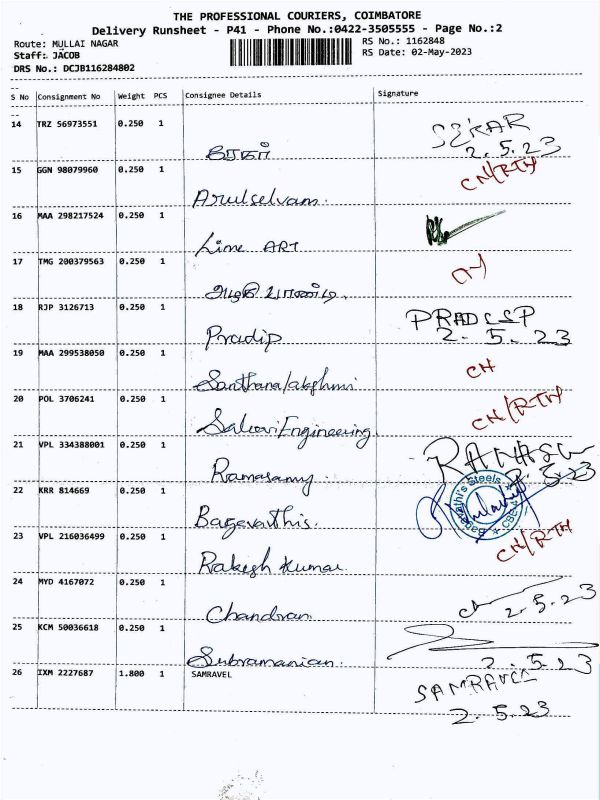 THE PROFESSIONAL COURIERS, COIMBATORE
Delivery Runsheet - P41 - Phone No.:0422-3505555 - Page No.:2
Route: MULLAI NAGAR RS No.: 1162848
Staff: JACOB RS Date: 02-May-2023
DRS No.: DCJB116284802
S No Consignment No Weight PCS Consignee Details Signature
14 TRZ 56973551 0.250 1
SEKAR
2.5.23
15 GGN 98079960 0.250 1
CN/RTH
Arulselvam.
16 MAA 298217524 0.250 1
Lime ART
17 TMG 200379563 0.250 1
18 RJP 3126713 0.250 1
Pradip
2.5.23
19 MAA 299538050 0.250 1
Santhanalakshmi
20 POL 3706241 0.250 1
CN/RTH
Engineering.
21 VPL 334388001 0.250 1
Ramasamy
22 KRR 814669 0.250 1
Steels
23 VPL 216036499 0.250 1
CN/RTH
Rakesh Kumar
24 MYD 4167072 0.250 1
Chandran
2.5.23
25 KCM 50036618 0.250 1
Subramanian.
2.5.23
26 IXM 2227687 1.800 1 SAMRAVEL
2.5.23